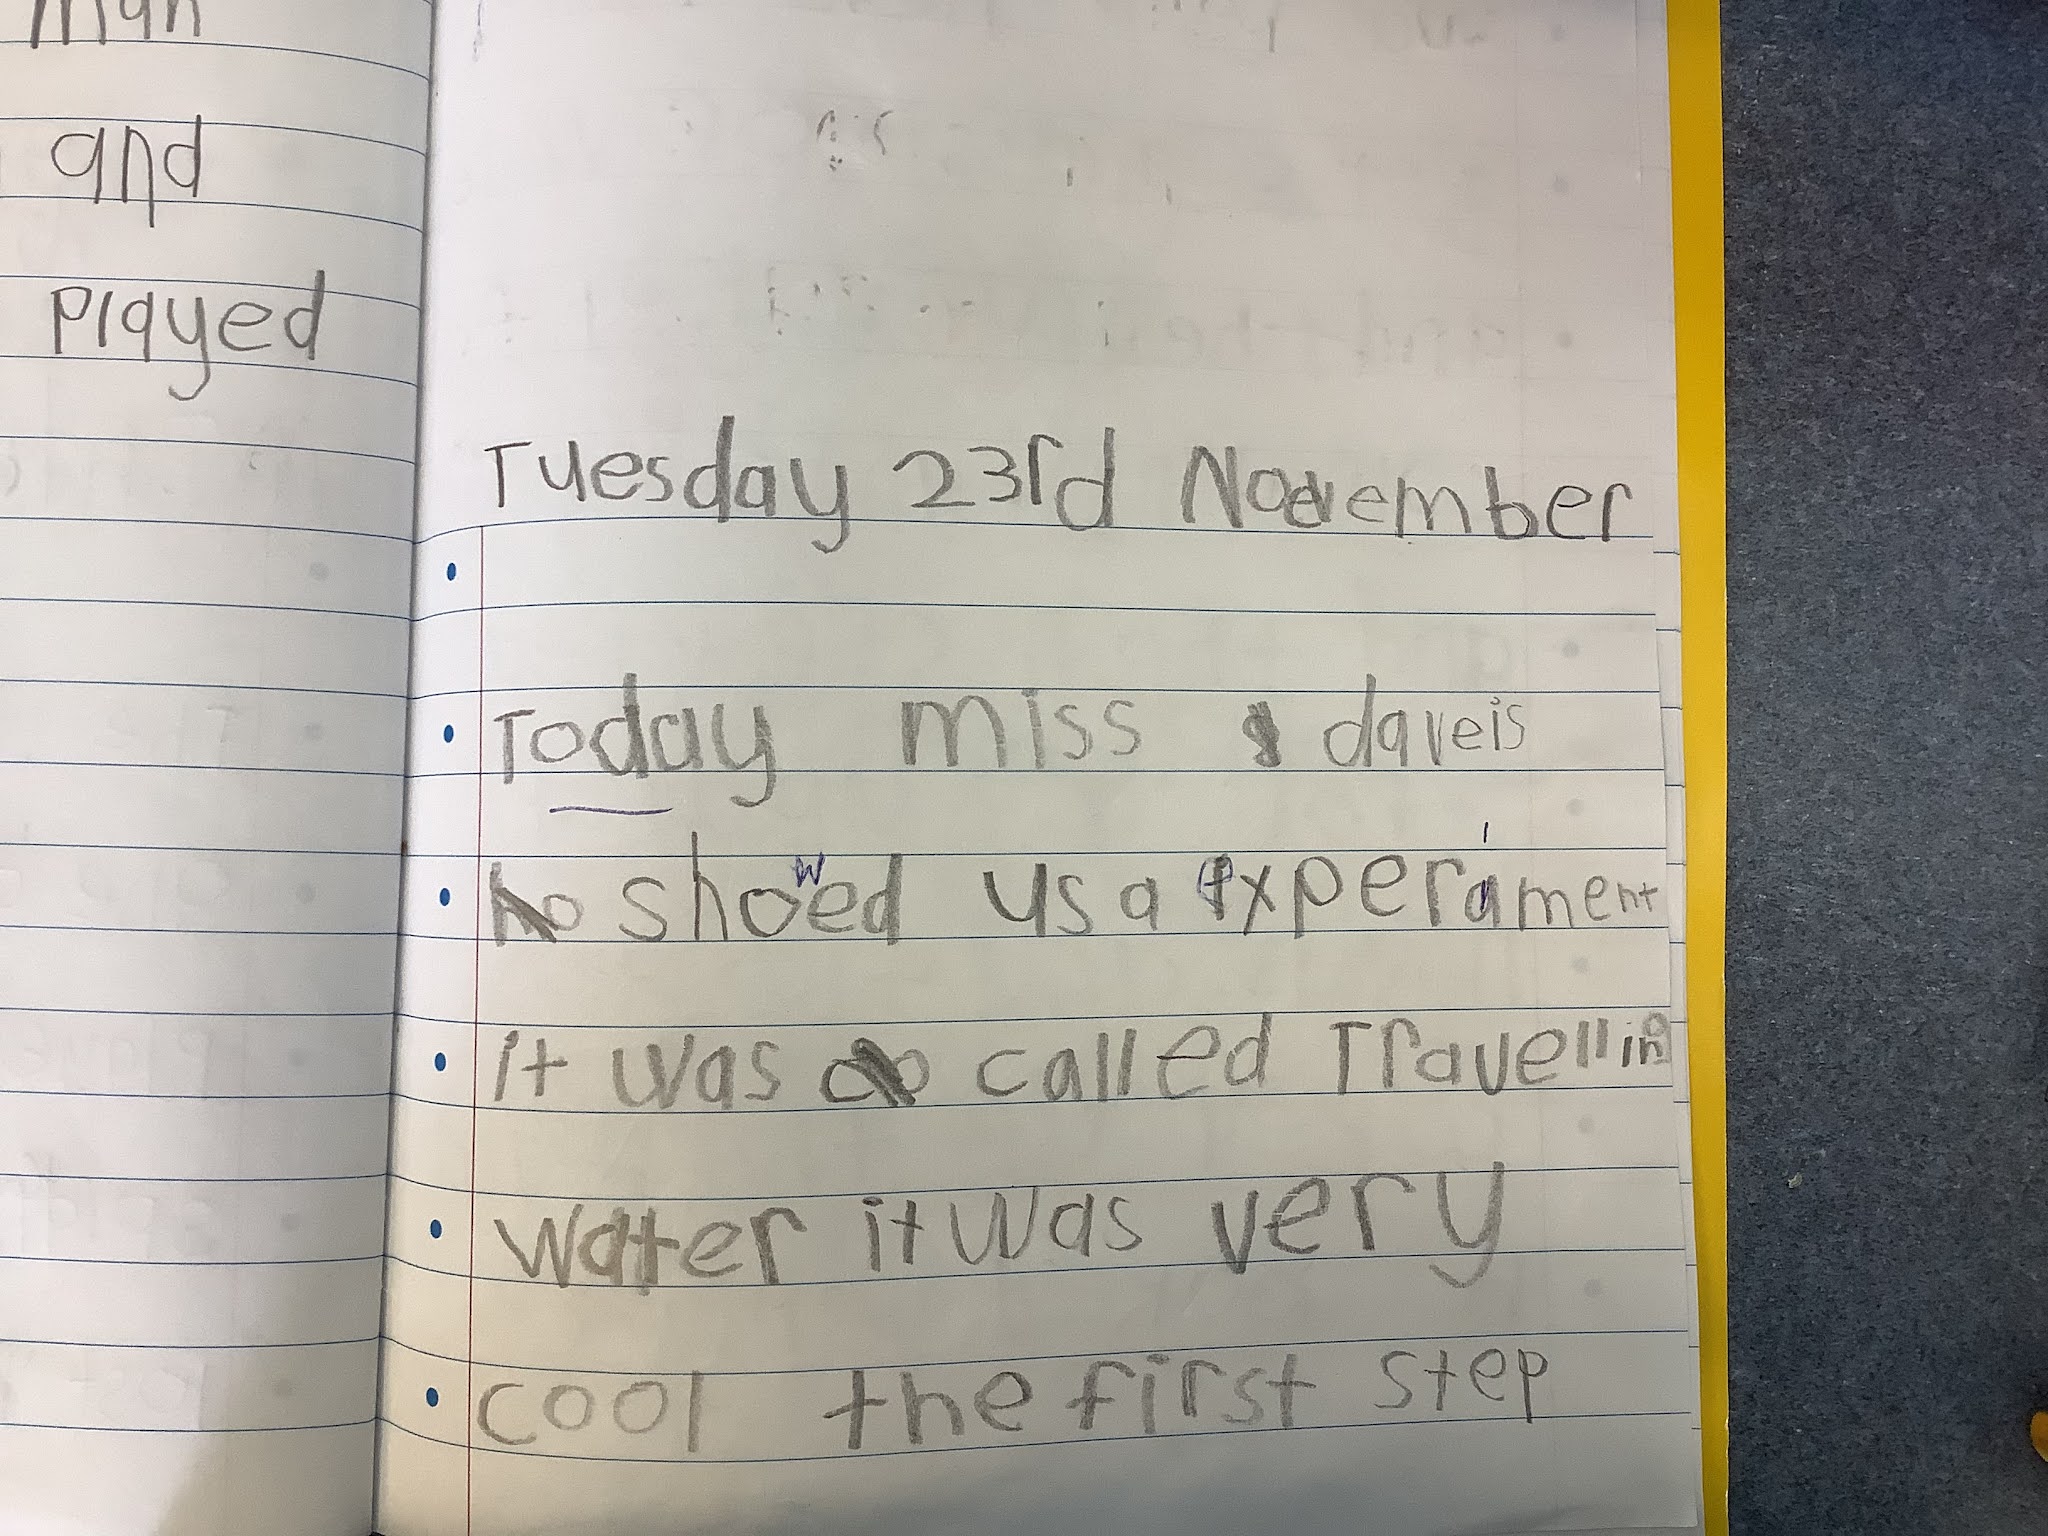 man
and
played
Tuesday 23rd November
Today miss daveis
showed us a experiment
it was called Travelling
water it was very
cool the first step